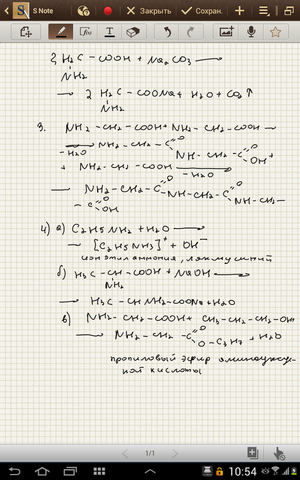 S Note
Закрыть
Сохран.
2 H2C – COOH + Na2CO3 →
NH2
→ 2 H2C – COONa + H2O + CO2↑
NH2
3. NH2 – CH2 – COOH + NH2 – CH2 – COOH →
–H2O NH2 – CH2 – C O NH – CH2 – C O OH +
+ NH2 – CH2 – COOH –H2O →
→ NH2 – CH2 – C O NH – CH2 – C O NH – CH2 –
– C O OH
4) а) C2H5NH2 + H2O →
→ [C2H5NH3]+ + OH–
ион этиламмония, лакмус синий
б) H3C – CH – COOH + NaOH →
NH2
→ H3C – CH NH2 – COONa + H2O
в) NH2 – CH2 – COOH + CH3 – CH2 – CH2 – OH
→ NH2 – CH2 – C O O – C3H7 + H2O
пропиловый эфир аминоуксус
ной кислоты
1/1
10:54